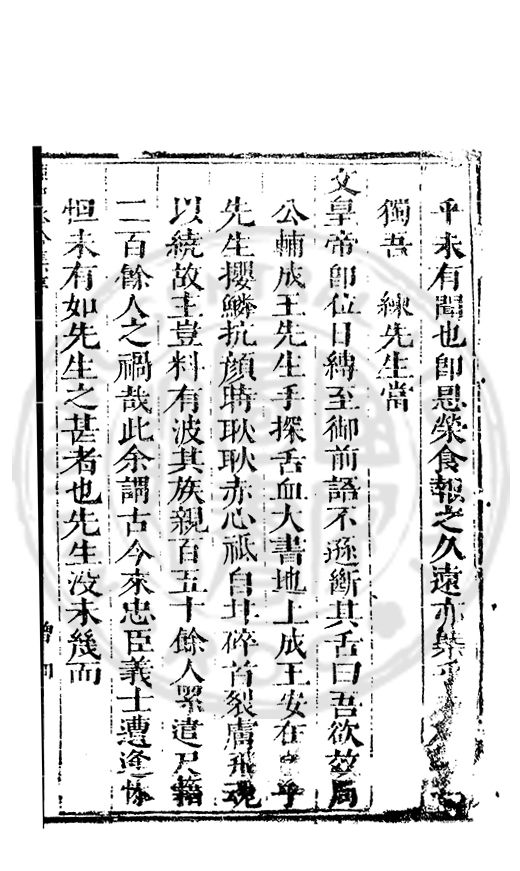 乎未有聞也卽恩榮食報之久遠亦
獨吾　練先生當
文皇帝卽位日縛至御前語不遜斷其舌曰吾欲效周
公輔成王先生手探舌血大書地上成王安在
先生攖鱗抗顏時耿耿赤心祗自甘碎首裂膚飛魂
以繞故主豈料有波其族親百五十餘人累遣尺籍
二百餘人之禍哉此余謂古今來忠臣義士遭逢慘
怛未有如先生之甚者也先生沒未幾而